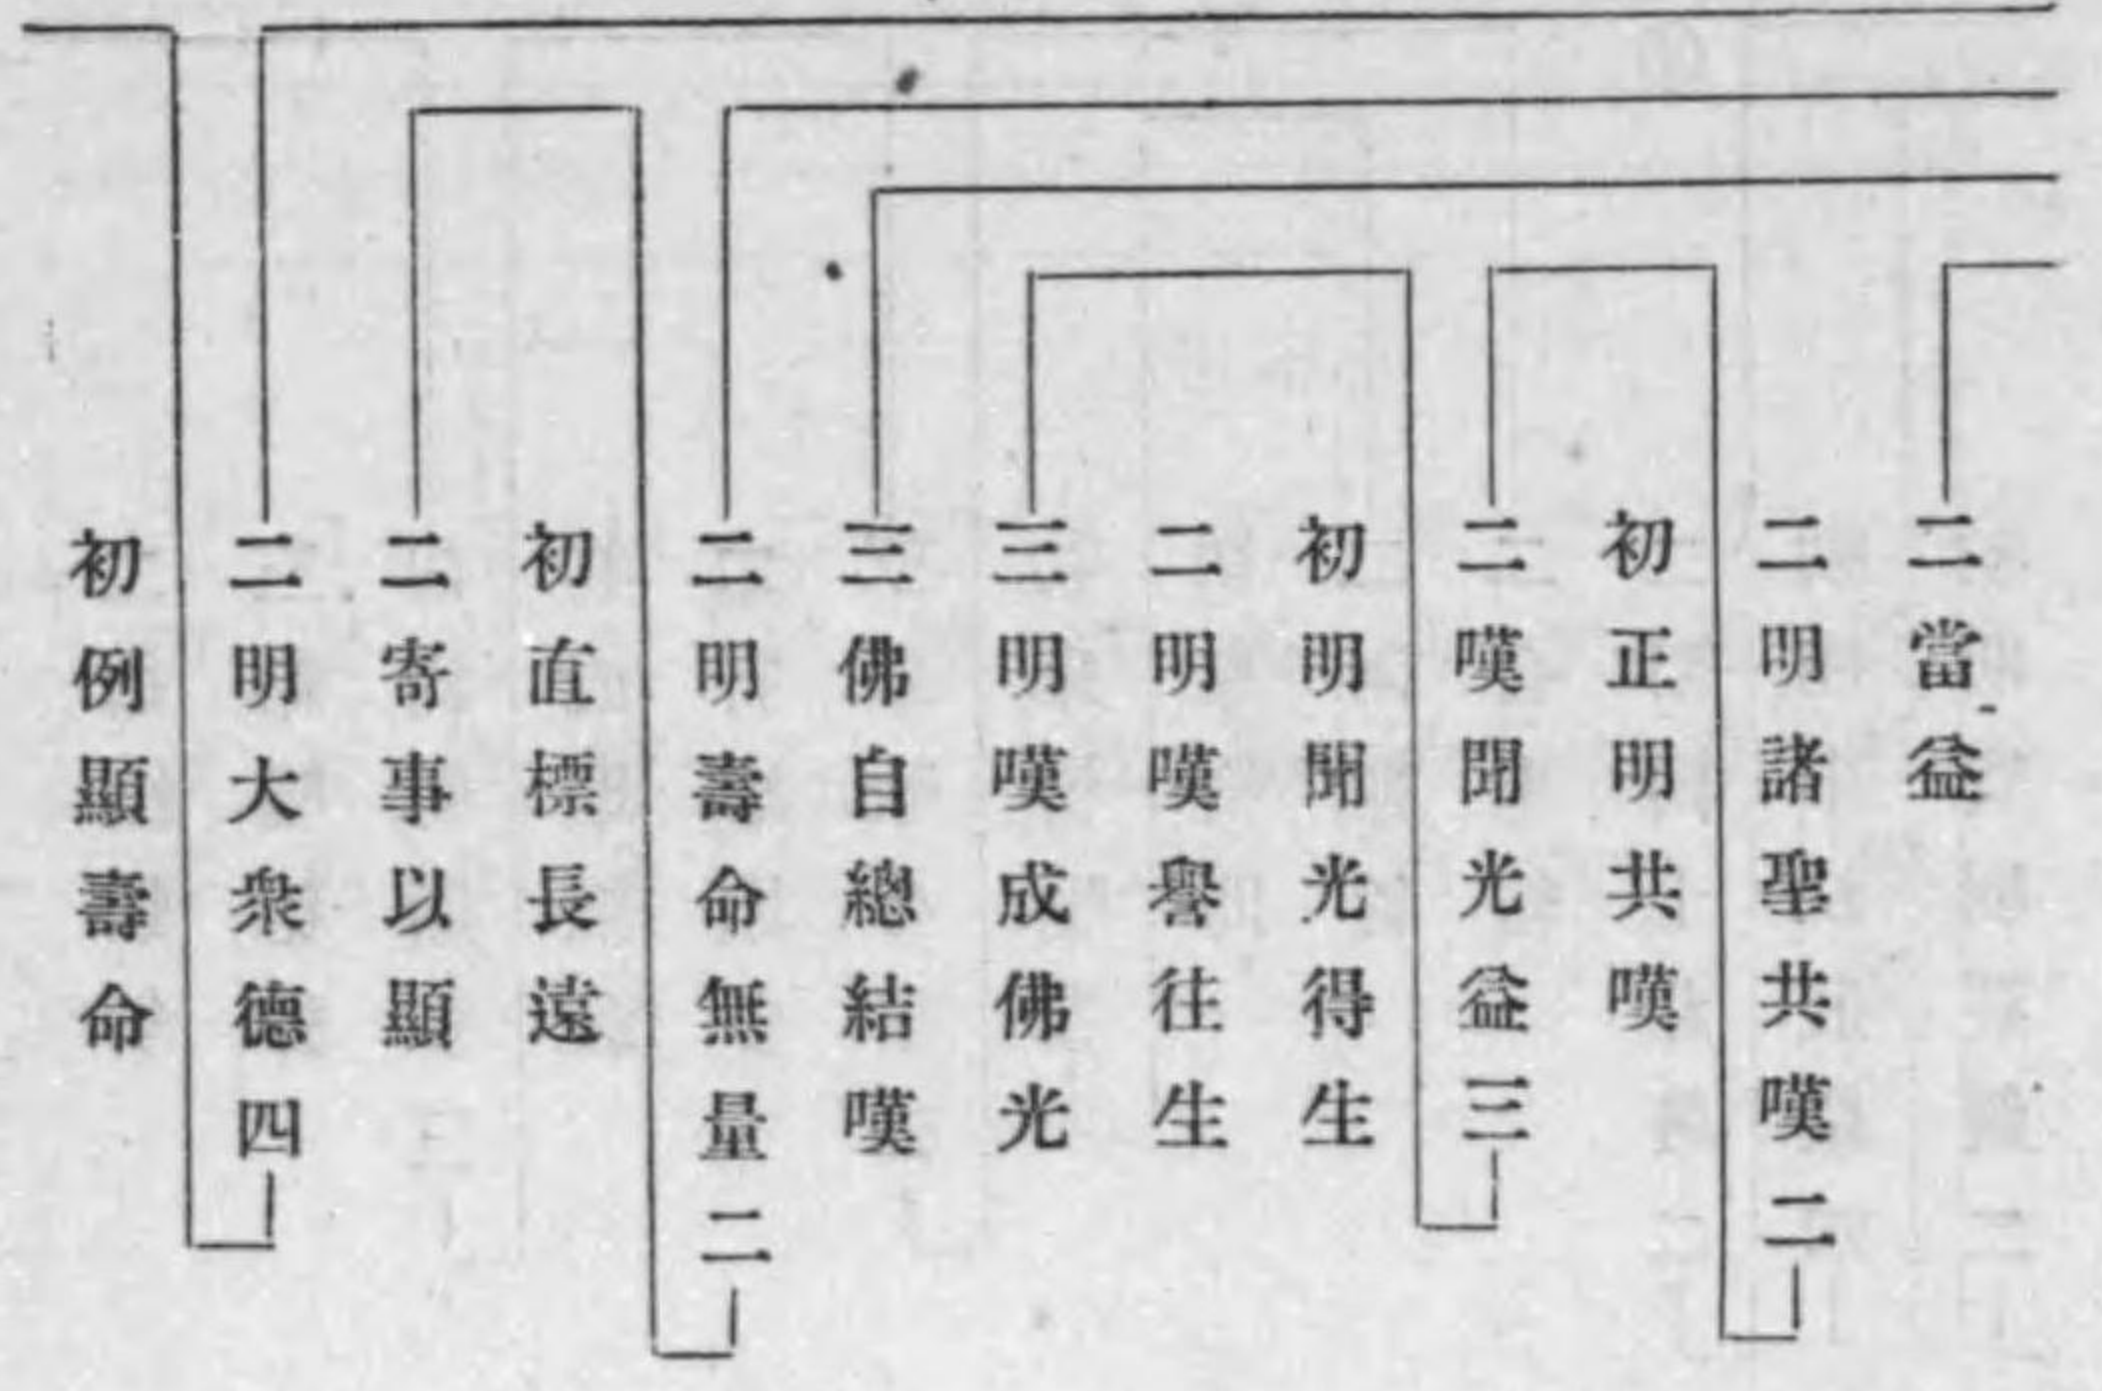 二當益
二明諸聖共嘆二
初正明共嘆
二嘆聞光益三
初明聞光得生
二明嘆譽往生
三明嘆成佛光
三佛自總結嘆
二明壽命無量二
初直標長遠
二寄事以顯
二明大衆德四
初例顯壽命